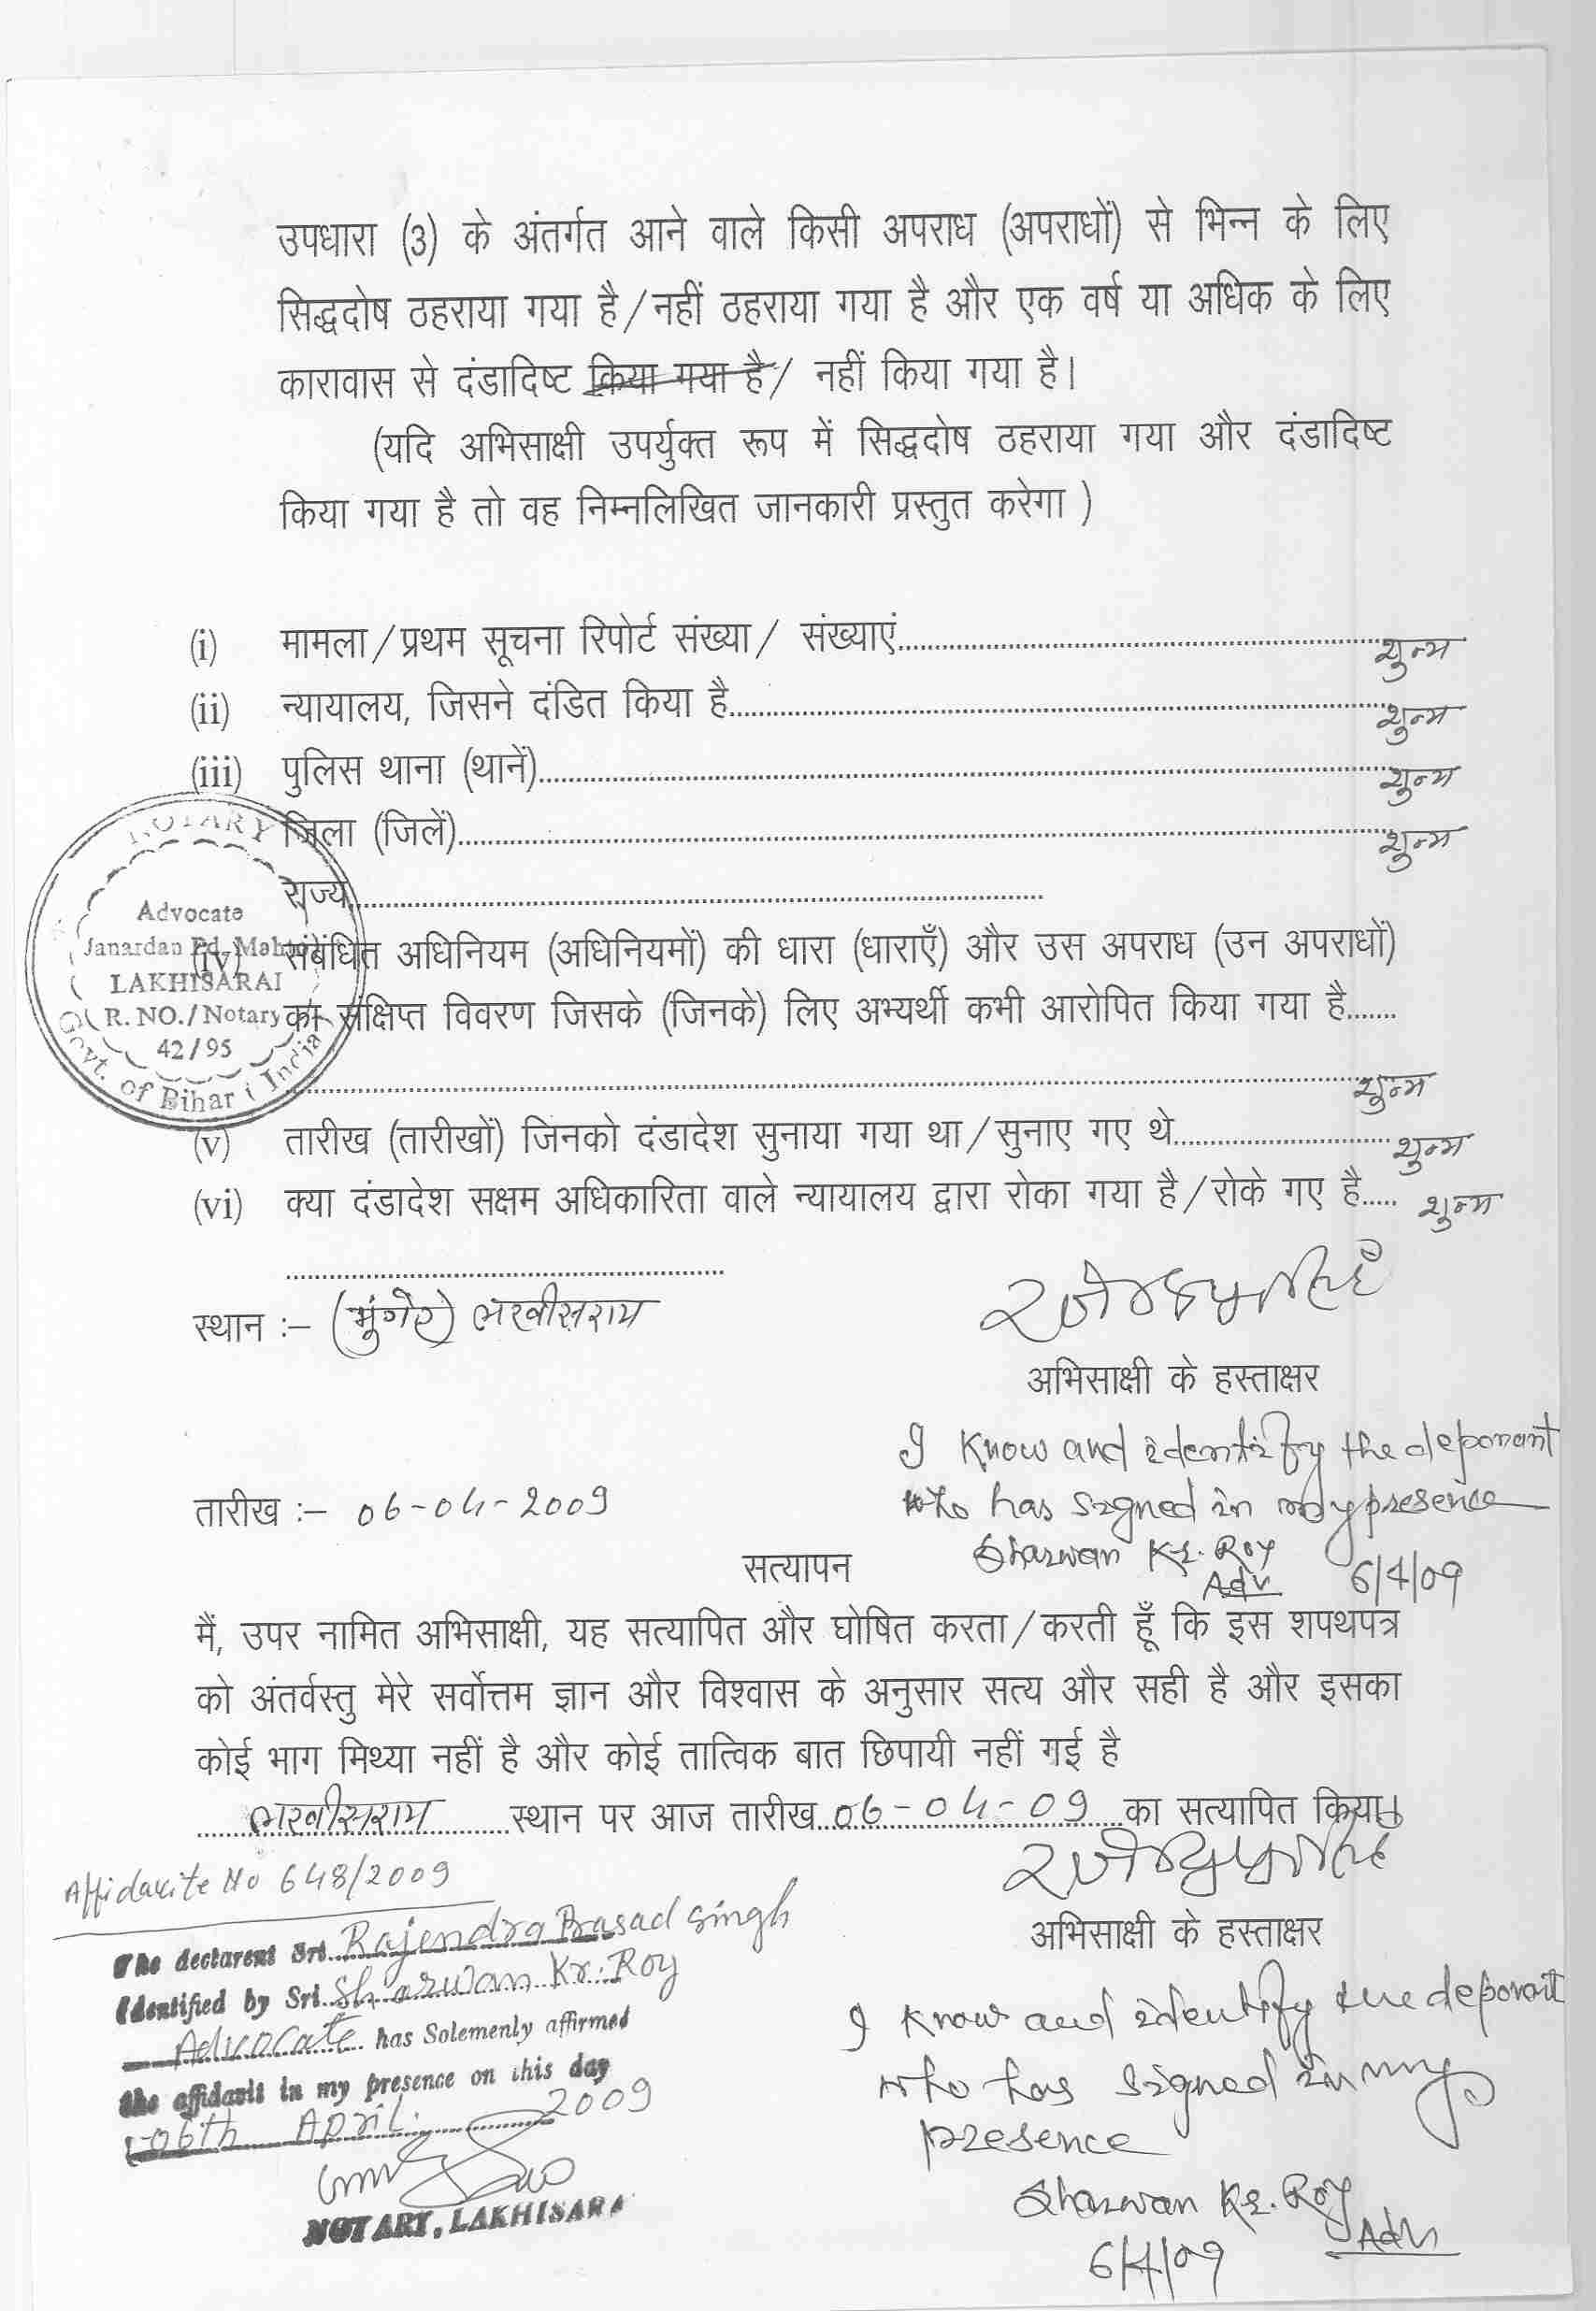 उपधारा (3) के अंतर्गत आने वाले किसी अपराध (अपराधों) से भिन्न के लिए
सिद्धदोष ठहराया गया है/नहीं ठहराया गया है और एक वर्ष या अधिक के लिए
कारावास से दंडादिष्ट किया गया है/ नहीं किया गया है।
(यदि अभिसाक्षी उपर्युक्त रूप में सिद्धदोष ठहराया गया और दंडादिष्ट
किया गया है तो वह निम्नलिखित जानकारी प्रस्तुत करेगा )
(i) मामला/प्रथम सूचना रिपोर्ट संख्या/ संख्याएं.......... शुन्य
(ii) न्यायालय, जिसने दंडित किया है.......... शुन्य
(iii) पुलिस थाना (थानें).......... शुन्य
जिला (जिलें).......... शुन्य
राज्य..........
(iv) संबंधित अधिनियम (अधिनियमों) की धारा (धाराएँ) और उस अपराध (उन अपराधों)
का संक्षिप्त विवरण जिसके (जिनके) लिए अभ्यर्थी कभी आरोपित किया गया है.......
.......... शुन्य
(v) तारीख (तारीखों) जिनको दंडादेश सुनाया गया था/सुनाए गए थे.......... शुन्य
(vi) क्या दंडादेश सक्षम अधिकारिता वाले न्यायालय द्वारा रोका गया है/रोके गए है..... शुन्य
..........
NOTARY
Advocate
Janardan Pd. Mah
LAKHISARAI
R. NO./Notary
42/95
Govt. of Bihar (India)
स्थान :– (मुंगेर) लखीसराय
अभिसाक्षी के हस्ताक्षर
I know and identify the deponant
who has signed in my presence
Sharwan Kr. Roy
Adv 6/4/09
तारीख :– 06-04-2009
सत्यापन
मैं, उपर नामित अभिसाक्षी, यह सत्यापित और घोषित करता/करती हूँ कि इस शपथपत्र
को अंतर्वस्तु मेरे सर्वोत्तम ज्ञान और विश्वास के अनुसार सत्य और सही है और इसका
कोई भाग मिथ्या नहीं है और कोई तात्विक बात छिपायी नहीं गई है
लखीसराय स्थान पर आज तारीख 06-04-09 का सत्यापित किया।
अभिसाक्षी के हस्ताक्षर
Affidavite No 648/2009
The declarent Sri Rajendra Prasad Singh
Identified by Sri Sharwan Kr. Roy
Advocate has Solemenly affirmed
the affidavit in my presence on this day
06th April 2009
NOTARY, LAKHISARA
I know and identify the deponant
who has signed in my
presence
Sharwan Kr. Roy
Adv
6/4/09